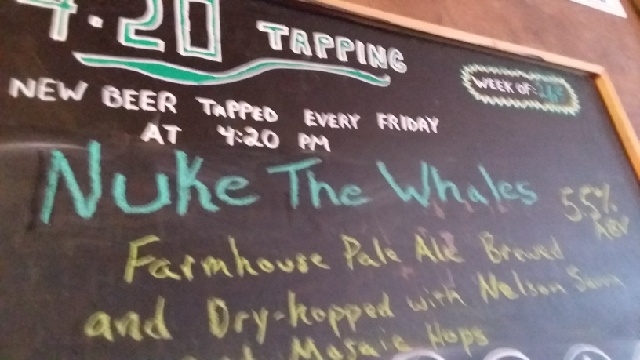 4:20 TAPPING
WEEK OF:
NEW BEER TAPPED EVERY FRIDAY
AT 4:20 PM
Nuke The Whales
5.5%
ABV
Farmhouse Pale Ale Brewed
and Dry-hopped with Nelson
Mosaic Hops